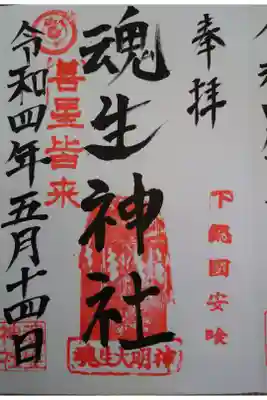 奉拝
下総國安喰
魂生神社
魂生大明神
善星皆来
令和四年五月十四日